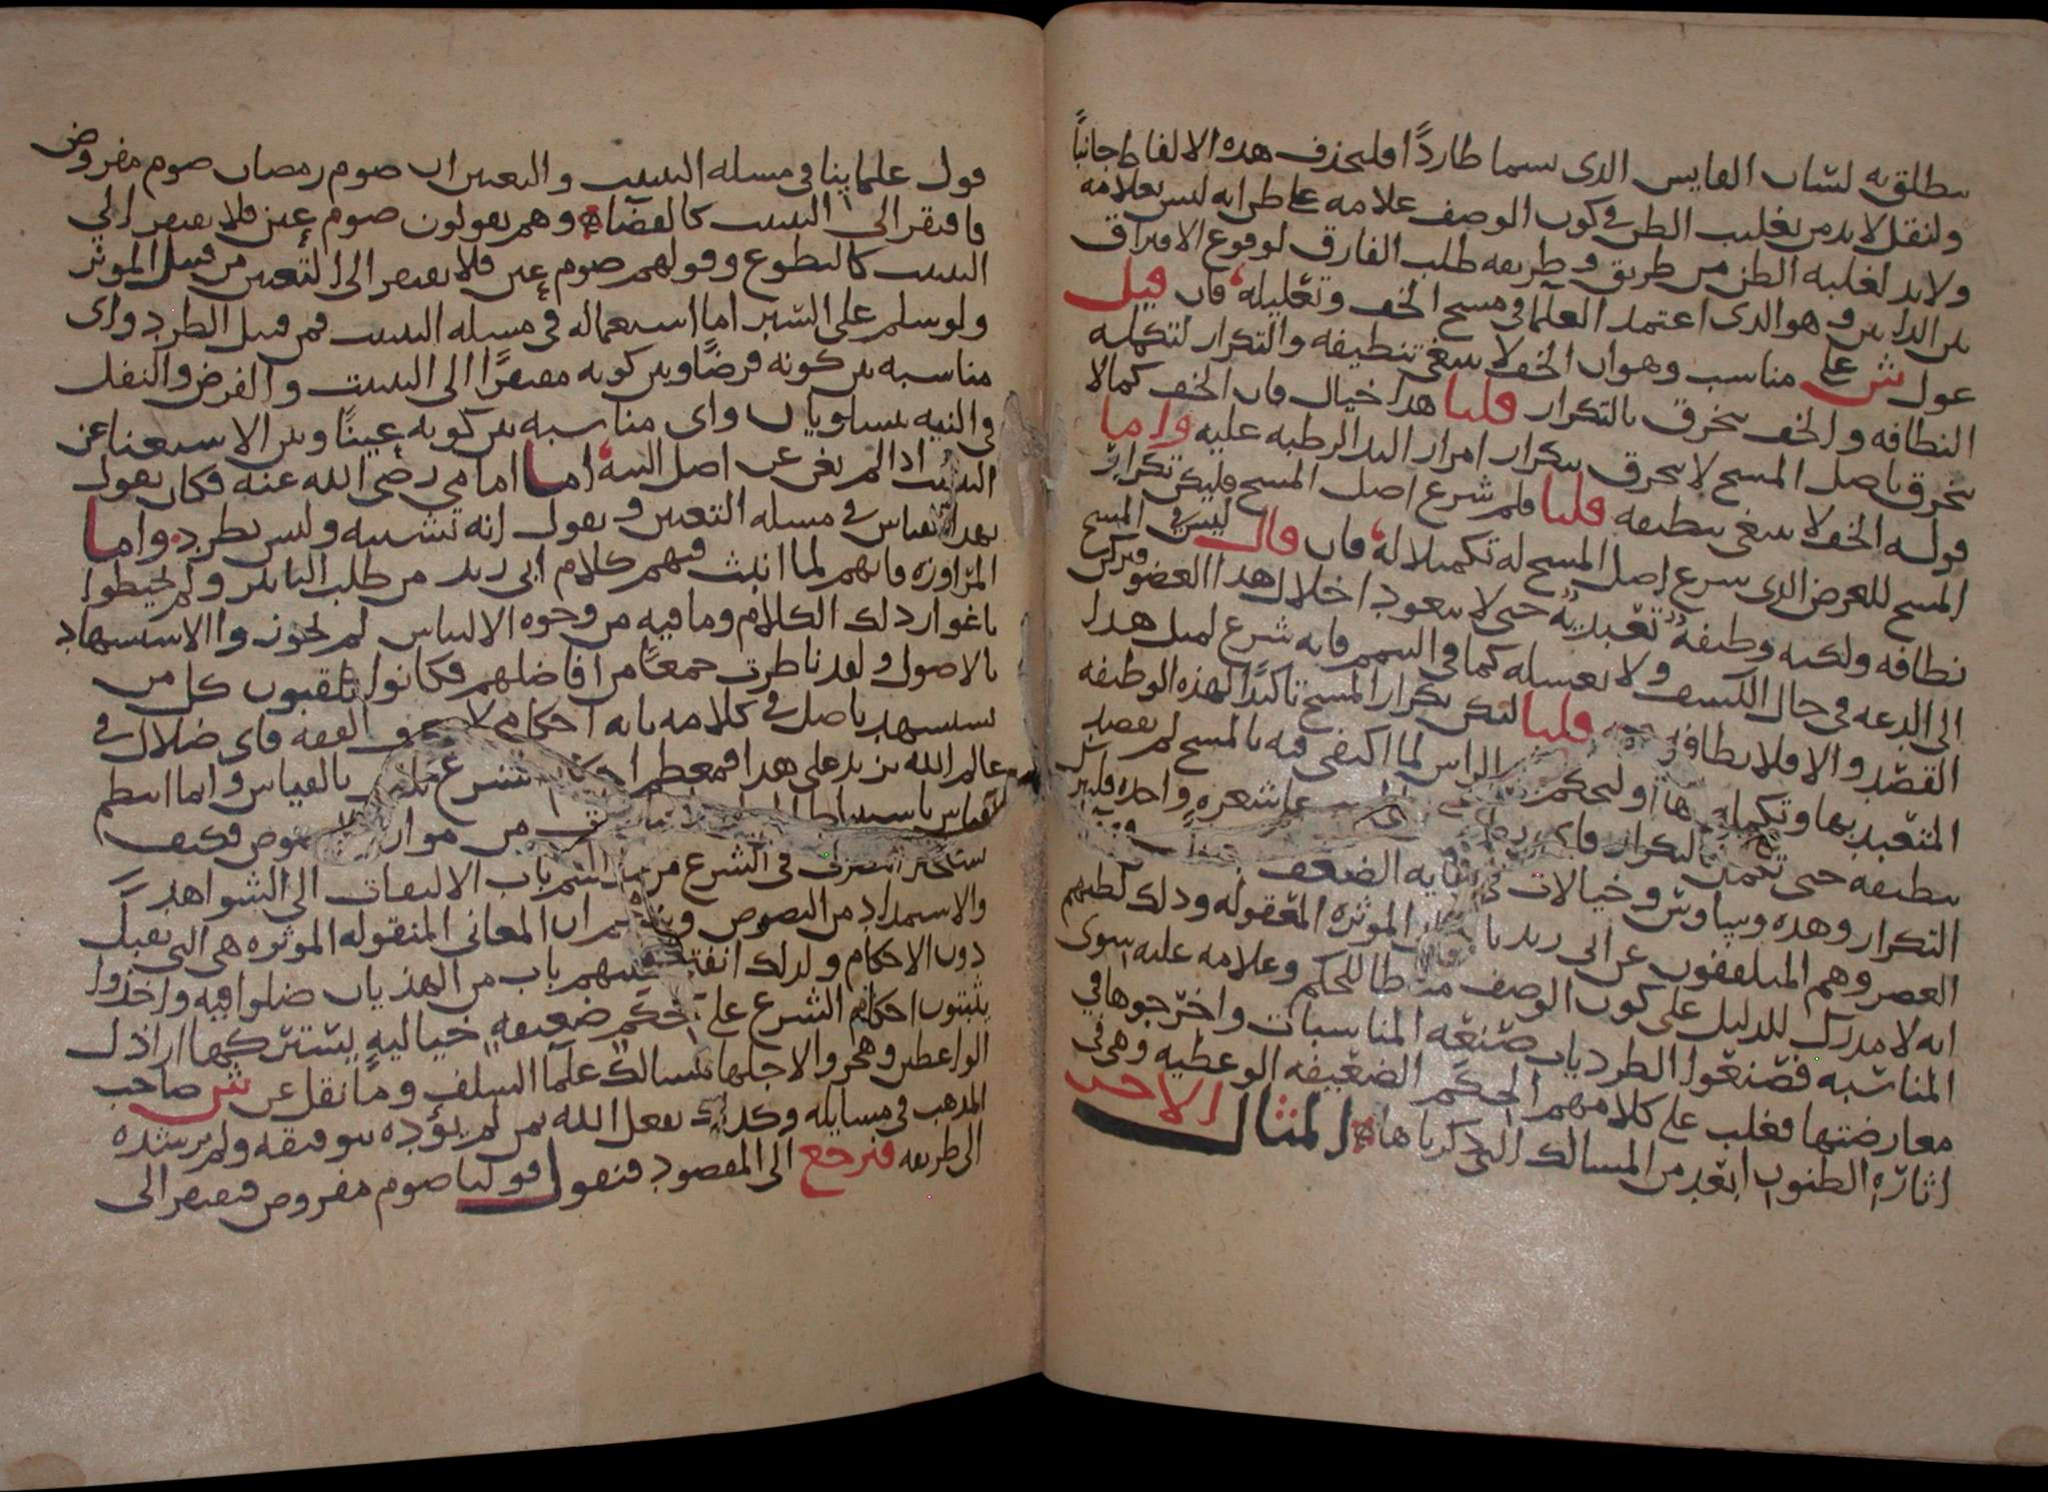 ينطلق به لسان القايس الذى سيما طاردًا فليحذف هذه الالفاظ جانبًا
ولنقل لابد من تغليب الظن في كون الوصف علامه على طرانه ليس بعلامه
ولابد لغلبه الظن من طريق وطريقه طلب الفارق لوقوع الافتراق
بين الدابين وهو الذى اعتمد العلما في مسح الخف وتعليله فان قيل
عول ش على مناسب وهو ان الخف لا ينبغى تنظيفه والتكرار لتكمله
النظافه والخف يتخرق بالتكرار قلنا هذا خيال فان الخف كما لا
يتخرق باصل المسح لا يتخرق بتكرار امرار اليد الرطبه عليه واما
قوله الخف لا ينبغى تنظيفه قلنا فلم شرع اصل المسح فليكن تكرار
المسح للغرض الذى شرع اصل المسح له تكميلا له فان قال ليس في المسح
نظافه ولكنه وظيفه تعبديه حتى لا يتعود اخلال هذا العضو فيركن
الى الدعه في حال الكشف ولا يغسله كما في التيمم فانه شرع لمثل هذا
القصد والا فلا نظافه فيه قلنا ليكن تكرار المسح تاكيدًا لهذه الوظيفه
المتعبد بها وتكمله لها اوليحكم الراس لما اكتفى فيه بالمسح لم يقصد
تنظيفه حتى على شعره واحده فليس
التكرار وهذه وساوس وخيالات في نهايه الضعف
العصر وهم المتلقفون عن ابى زيد المؤثره المعقوله وذلك لظنهم
انه لا مدرك للدليل على كون الوصف مناطا للحكم وعلامه عليه سوى
المناسبه فصنعوا الطرديات صنعه المناسبات واخرجوها في
معارضتها فغلب على كلامهم الحكم الضعيفه الوعظيه وهى في
اثاره الظنون ابعد من المسالك التى ذكرناها المثال الاخر
قول علماينا في مسله التبييت والتعيين ان صوم رمضان صوم مفروض
فافتقر الى التبييت كالقضا وهم يقولون صوم عين فلا يفتقر الى
التبييت كالتطوع وقولهم صوم عين فلا يفتقر الى التعيين من قبيل الموثر
ولو سلم على السبر اما استعماله في مسله التبييت فمن قبيل الطرد واى
مناسبه بين كونه فرضًا وبين كونه مفتقرًا الى التبييت والفرض والنفل
في النيه يتساويان واى مناسبه بين كونه عينًا وبين الاستغنا عن
التبييت اذا لم يغن عن اصل النيه اما امامي رضى الله عنه فكان يقول
بهذا القياس في مسله التعيين ويقول انه تشبيه وليس بطرد واما
المراوزه فانهم لما انبث فيهم كلام ابى زيد من طلب التاثير ولم يحيطوا
باغوار ذلك الكلام وما فيه من وجوه الالتباس لم يجوزوا الاستشهاد
بالاصول ولقد ناظرت جمعًا من افاضلهم فكانوا يلقبون كل من
يستشهد باصل في كلامه بانه احكامى لا يعرف الفقه فاى ضلال في
عالم الله يزيد على هذا فمعظم احكام الشرع بالقياس وانما انتظم
القياس باستنباط من موارد النصوص فكيف
يستجيز التصرف في الشرع من باب الالتفات الى الشواهد
والاستمداد من النصوص ان المعانى المنقوله الموثره هى التى تقبل
دون الاحكام ولذلك انفتح عليهم باب من الهذيان ضلوا فيه واخذوا
يثبتون احكام الشرع على حكم ضعيفه خياليه يشترك فيها اراذل
الواعظين وهجروا لاجلها مسالك علما السلف وما نقل عن ش صاحب
المذهب في مسايله وكذلك يفعل الله بمن لم يؤيده بتوفيقه ولم يرشده
الى طريقه فنرجع الى المقصود فنقول قولنا صوم مفروض فيفتقر الى